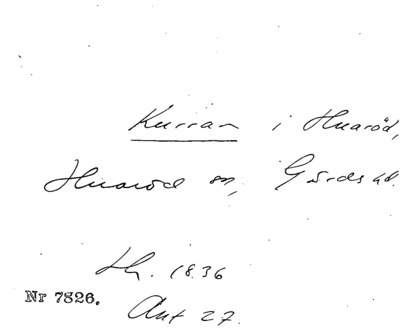 Kurran i Huaröd,
Huaröd sn, Gärds hd.
Lh. 1836
Nr 7826.
Akt 27.